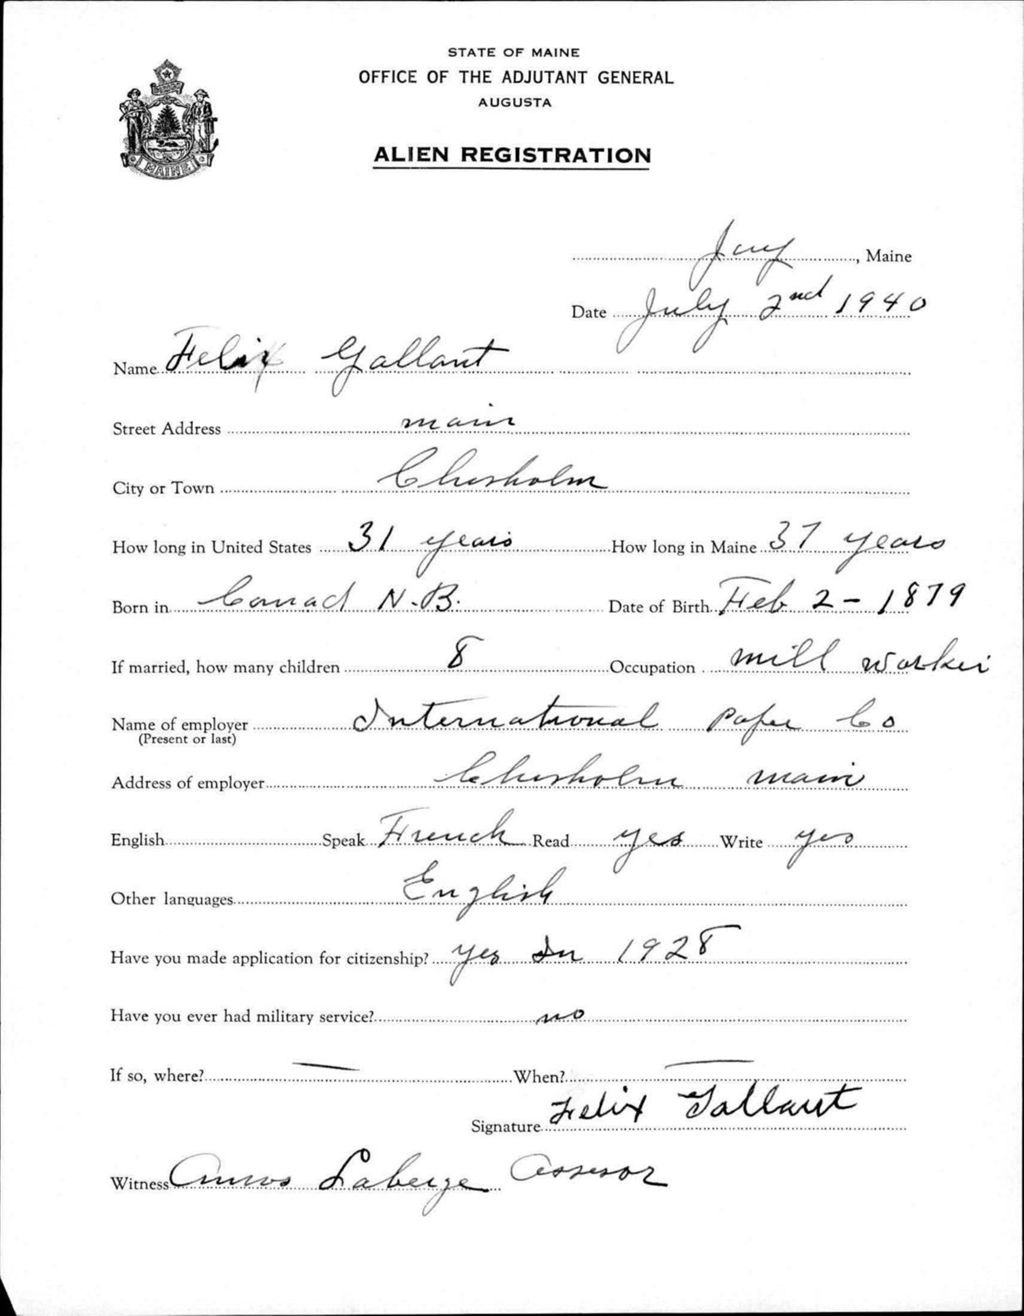 STATE OF MAINE
OFFICE OF THE ADJUTANT GENERAL
AUGUSTA
ALIEN REGISTRATION
MAINE
Jay, Maine
Date July 2nd 1940
Name Felix Gallant
Street Address main
City or Town Chesholm
How long in United States 31 years How long in Maine 37 years
Born in N.B. Date of Birth Feb 2 - 1879
If married, how many children 8 Occupation mill worker
Name of employer International Paper Co
(Present or last)
Address of employer Chesholm main
English Speak French Read yes Write yes
Other languages English
Have you made application for citizenship? yes In 1928
Have you ever had military service? no
If so, where? — When? —
Signature Felix Gallant
Witness Laberge Assesor